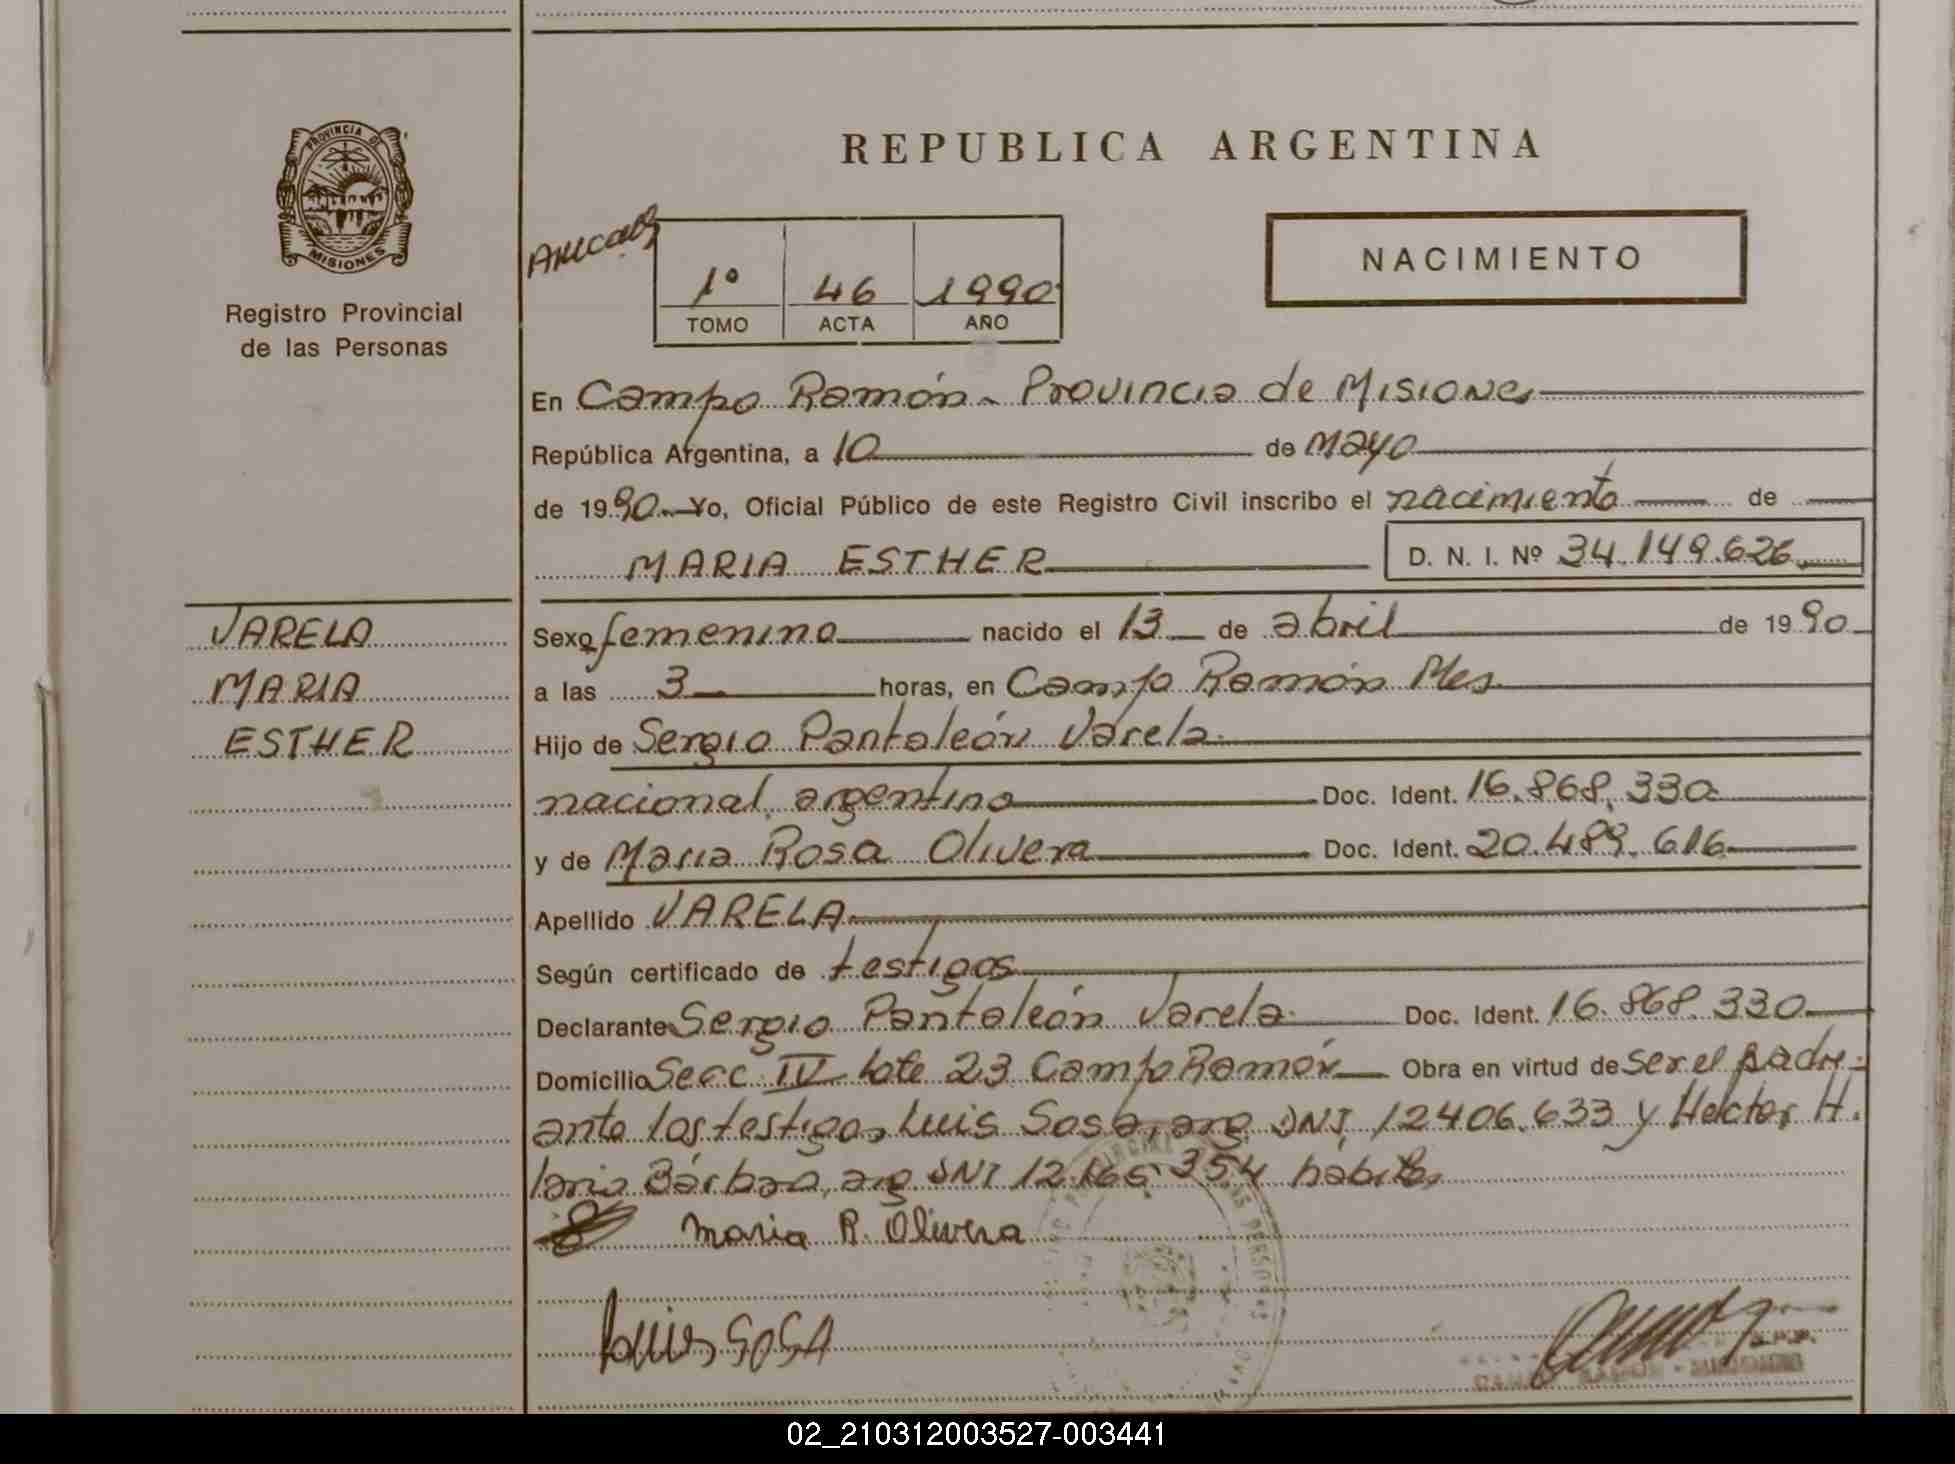 PROVINCIA DE
MISIONES
Registro Provincial
de las Personas
REPUBLICA ARGENTINA
NACIMIENTO
1º 46 1990
TOMO ACTA AÑO
En Campo Ramón - Provincia de Misiones
República Argentina, a 10 de mayo
de 1990. Yo, Oficial Público de este Registro Civil inscribo el nacimiento de
MARIA ESTHER D. N. I. Nº 34.149.626
VARELA
MARIA
ESTHER
Sexo femenino nacido el 13 de abril de 1990
a las 3 horas, en Campo Ramón Mes.
Hijo de Sergio Pantaleón Varela
nacional. argentino Doc. Ident. 16.868.330
y de Maria Rosa Olivera Doc. Ident. 20.489.616
Apellido VARELA
Según certificado de testigos
Declarante Sergio Pantaleón Varela Doc. Ident. 16.868.330
Domicilio Secc IV lote 23 Campo Ramón Obra en virtud de ser el padre
ante los testigos Luis Sosa, arg DNI, 12406.633 y Hector H.
Bárbaro, arg DNI 12.165.354 hábiles
Maria R. Olivera
Luis SOSA
02_210312003527-003441